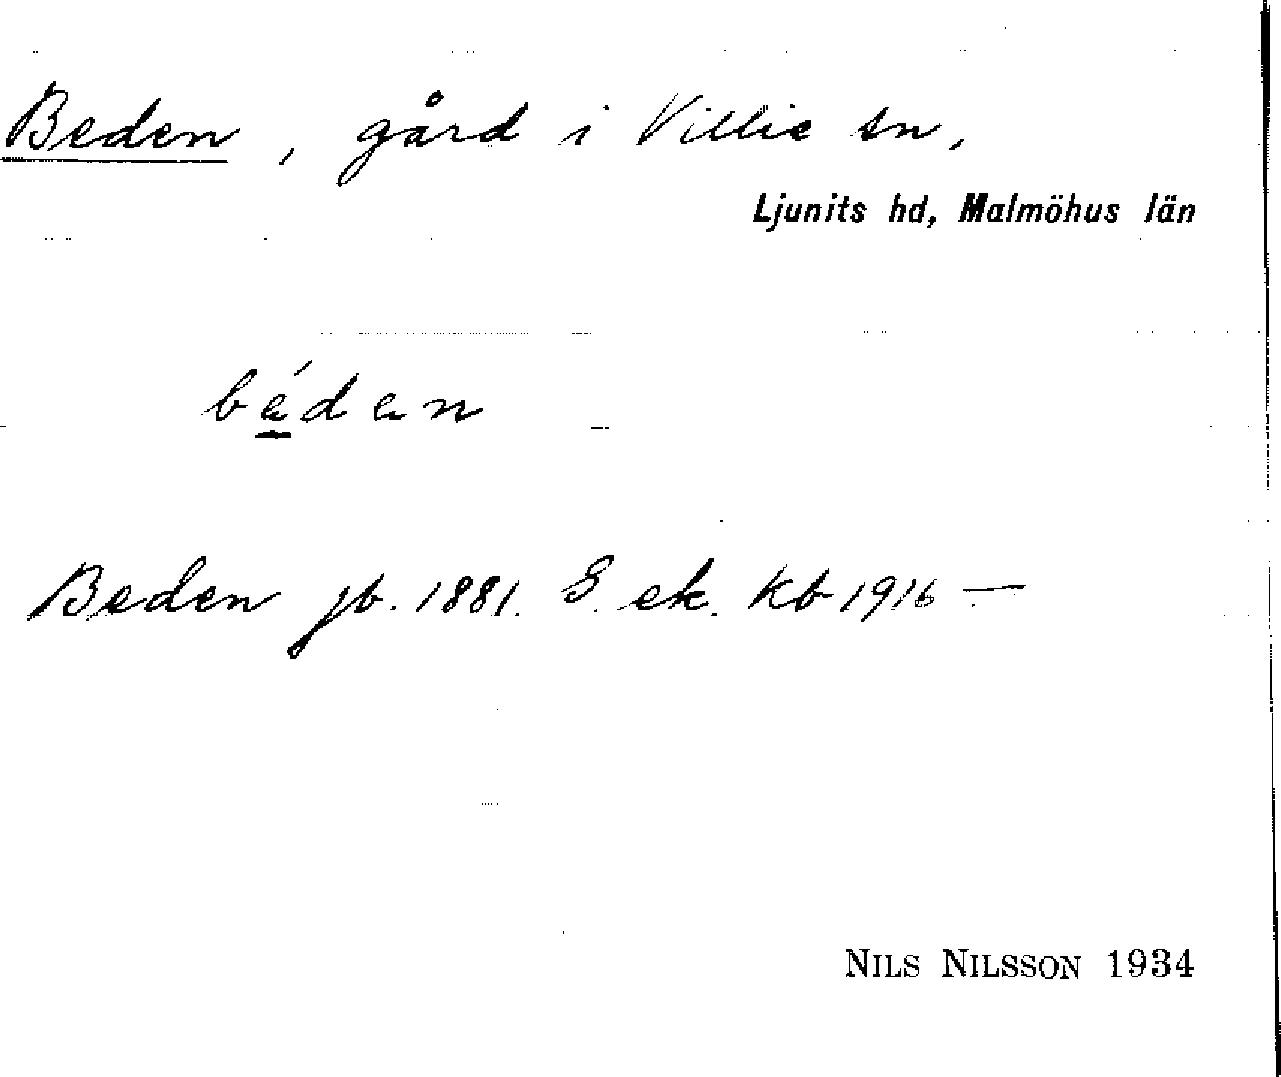 Beden, gård i Villie sn,
Ljunits hd, Malmöhus län
béden
Beden jb. 1881. S. ek. Kb 1916 —
NILS NILSSON 1934